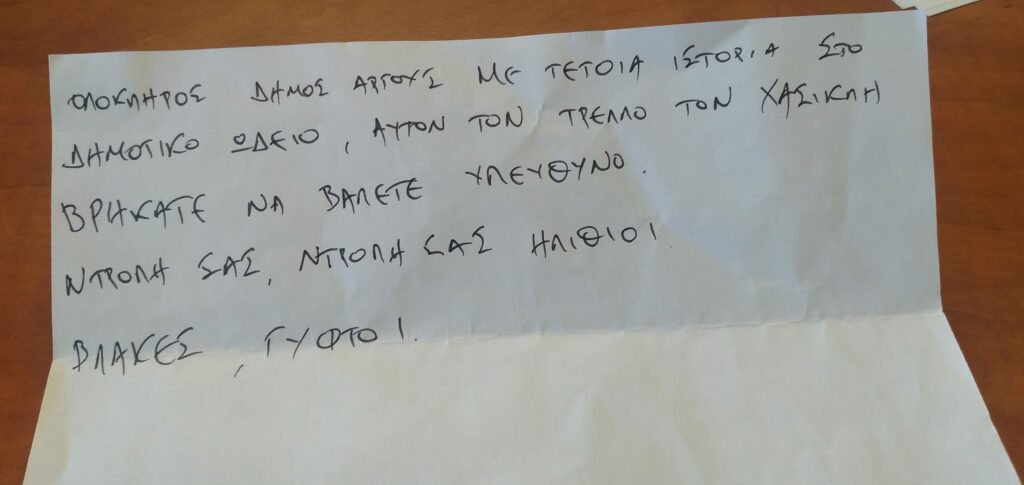 ΟΛΟΚΛΗΡΟΣ ΔΗΜΟΣ ΑΡΓΟΥΣ ΜΕ ΤΕΤΟΙΑ ΙΣΤΟΡΙΑ ΣΤΟ
ΔΗΜΟΤΙΚΟ ΩΔΕΙΟ, ΑΥΤΟΝ ΤΟΝ ΤΡΕΛΛΟ ΤΟΝ ΧΑΣΙΚΛΗ
ΒΡΗΚΑΤΕ ΝΑ ΒΑΛΕΤΕ ΥΠΕΥΘΥΝΟ.
ΝΤΡΟΠΗ ΣΑΣ, ΝΤΡΟΠΗ ΣΑΣ ΗΛΙΘΙΟΙ.
ΒΛΑΚΕΣ, ΓΥΦΤΟΙ.